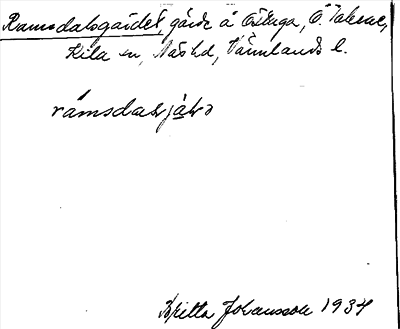 Ramsdalsgärdet, gärde å Östuga, Ö Takene,
Kila sn, Näs hd, Värmlands l.
ramsdasjæɬɔ
Britta Johansson 1934